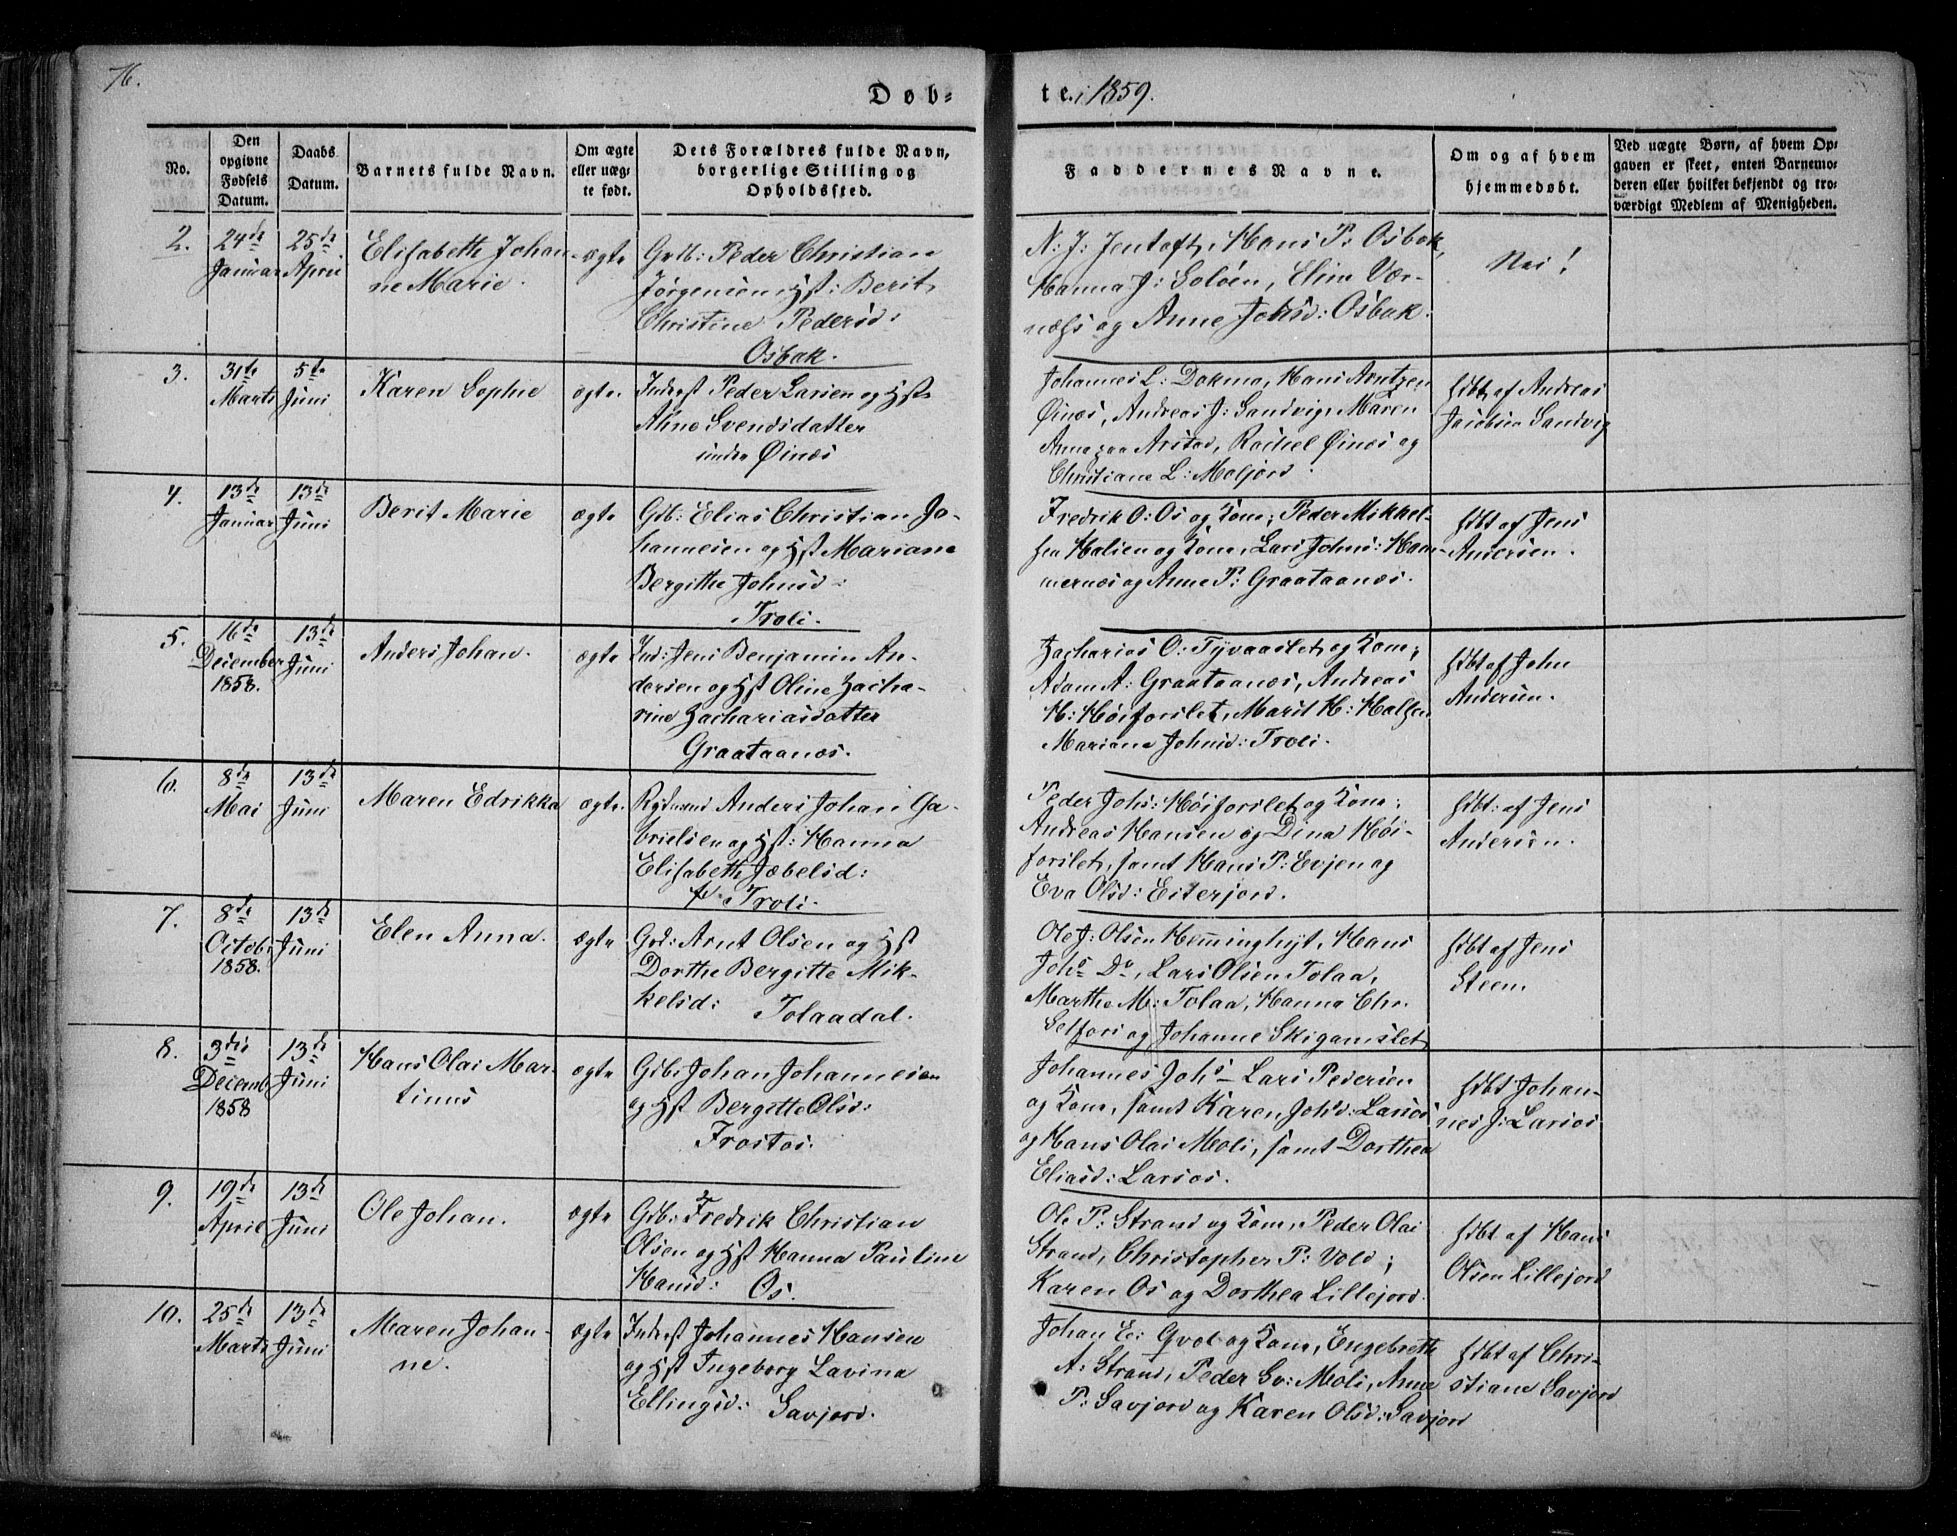 76.
Døb-
te i 1859.
No.
Den opgivne Fødsels Datum.
Daabs Datum.
Barnets fulde Navn.
Om ægte eller uægte født.
Dets Forældres fulde Navn, borgerlige Stilling og Opholdssted.
Faddernes Navne.
Om og af hvem hjemmedøbt.
Ved uægte Børn, af hvem Opgaven er skeet, enten Barnemoderen eller hvilket bekjendt og troværdigt Medlem af Menigheden.
2.
24de Januar
25de April
Elisabeth Johan-
ne Marie.
ægte
Gdb: Peder Christian
Jørgensen Hst: Berit
Christine Pedersd:
Osbak.
N: J: Jentoft, Hans P: Osbak,
Hanna J: Soløen, Elina Vær-
næss og Anne Johsd: Osbak.
Nei!
3.
31te Marts
5te Juni
Karen Sophie
ægte.
Inderst Peder Larsen og Hst
Ahne Svendsdatter
under Øinæs
Johannes L: Dokmo, Hans Arntzen
Øinæs, Andreas J: Sandvig, Maren
Anna paa Arstad, Rachel Øinæs og
Christiane L: Moljord.
hdbt af Andreas
Jacobsen Sandvig
4.
13de Januar
13de Juni
Berit Marie
ægte
Gdb: Elias Christian Jo-
hannesen og Hst Mariane
Bergithe Johnsd:
Troli.
Fredrik O: Os og Kone, Peder Mikkel-
sen Halsen og Kone, Lars Johns: Ham-
mernæs og Anne P: Graataanæs.
hdbt af Jens
Andersen.
5.
16de December 1858.
13de Juni
Anders Johan.
ægte
Ind: Jens Benjamin An-
dersen og Hst Oline Zacha-
rine Zachariasdatter
Graataanæs.
Zacharias O: Tyvaaslet og Kone;
Adam A: Graataanæs, Andreas
H: Høiforslet, Marit H: Halsen
Mariane Johnsd: Troli.
hdbt af John
Andersen.
6.
8de Mai
13de Juni
Maren Edrikka
ægte.
Rydmand Anders Johan Ga-
brielsen og Hst: Hanna
Elisabeth Jæbelsd:
Troli.
Peder Johs: Høiforslet og Kone;
Andreas Hansen og Dina Høi-
forslet, samt Hans P: Evjen og
Eva Olsd: Eiterjord.
hdbt: af Jens
Andersen.
7.
8de Octob: 1858.
13de Juni
Elen Anna.
ægte
Gbd: Arnt Olsen og Hst
Dorthe Bergitte Mik-
kelsd: Tolaadal.
Ole J: Olsen Hemminghyt, Hans
Johs Do, Lars Olsen Tolaa,
Marthe M: Tolaa, Hanna Chr.
Selfors og Johanne Skigamslet
hdbt af Jens
Steen.
8.
3die Decemb 1858
13de Juni
Hans Olai Mar-
tinus
ægte
Gdb: Johan Johannesen
og Hst Bergitte Olsd:
Frostos.
Johannes Johs Lars Pedersen
og Kone, samt Karen Johsd: Larsos
og Hans Olai Moli, samt Dorthea
Eliasd: Larsos.
hdbt Johan-
nes J: Larsos
9.
19de April
13de Juni
Ole Johan.
ægte
Gdb: Fredrik Christian
Olsen og Hst Hanna Pauline
Hansd: Os.
Ole P: Strand og Kone, Peder Olai
Strand, Christopher P: Vold;
Karen Os og Dorthea Lillejord.
hdbt af Hans
Olsen Lillejord
10.
25de Marts
13de Juni
Maren Johan-
ne.
ægte
Inderst Johannes Hansen
og Hst Ingeborg Lavina
Ellingsd: Savjord.
Johan E: Qvol og Kone, Engebreth
A: Strand, Peder Sv: Moli, Anne
P: Savjord og Karen Olsd: Savjord
hdbt af Chri-
stiane Savjord